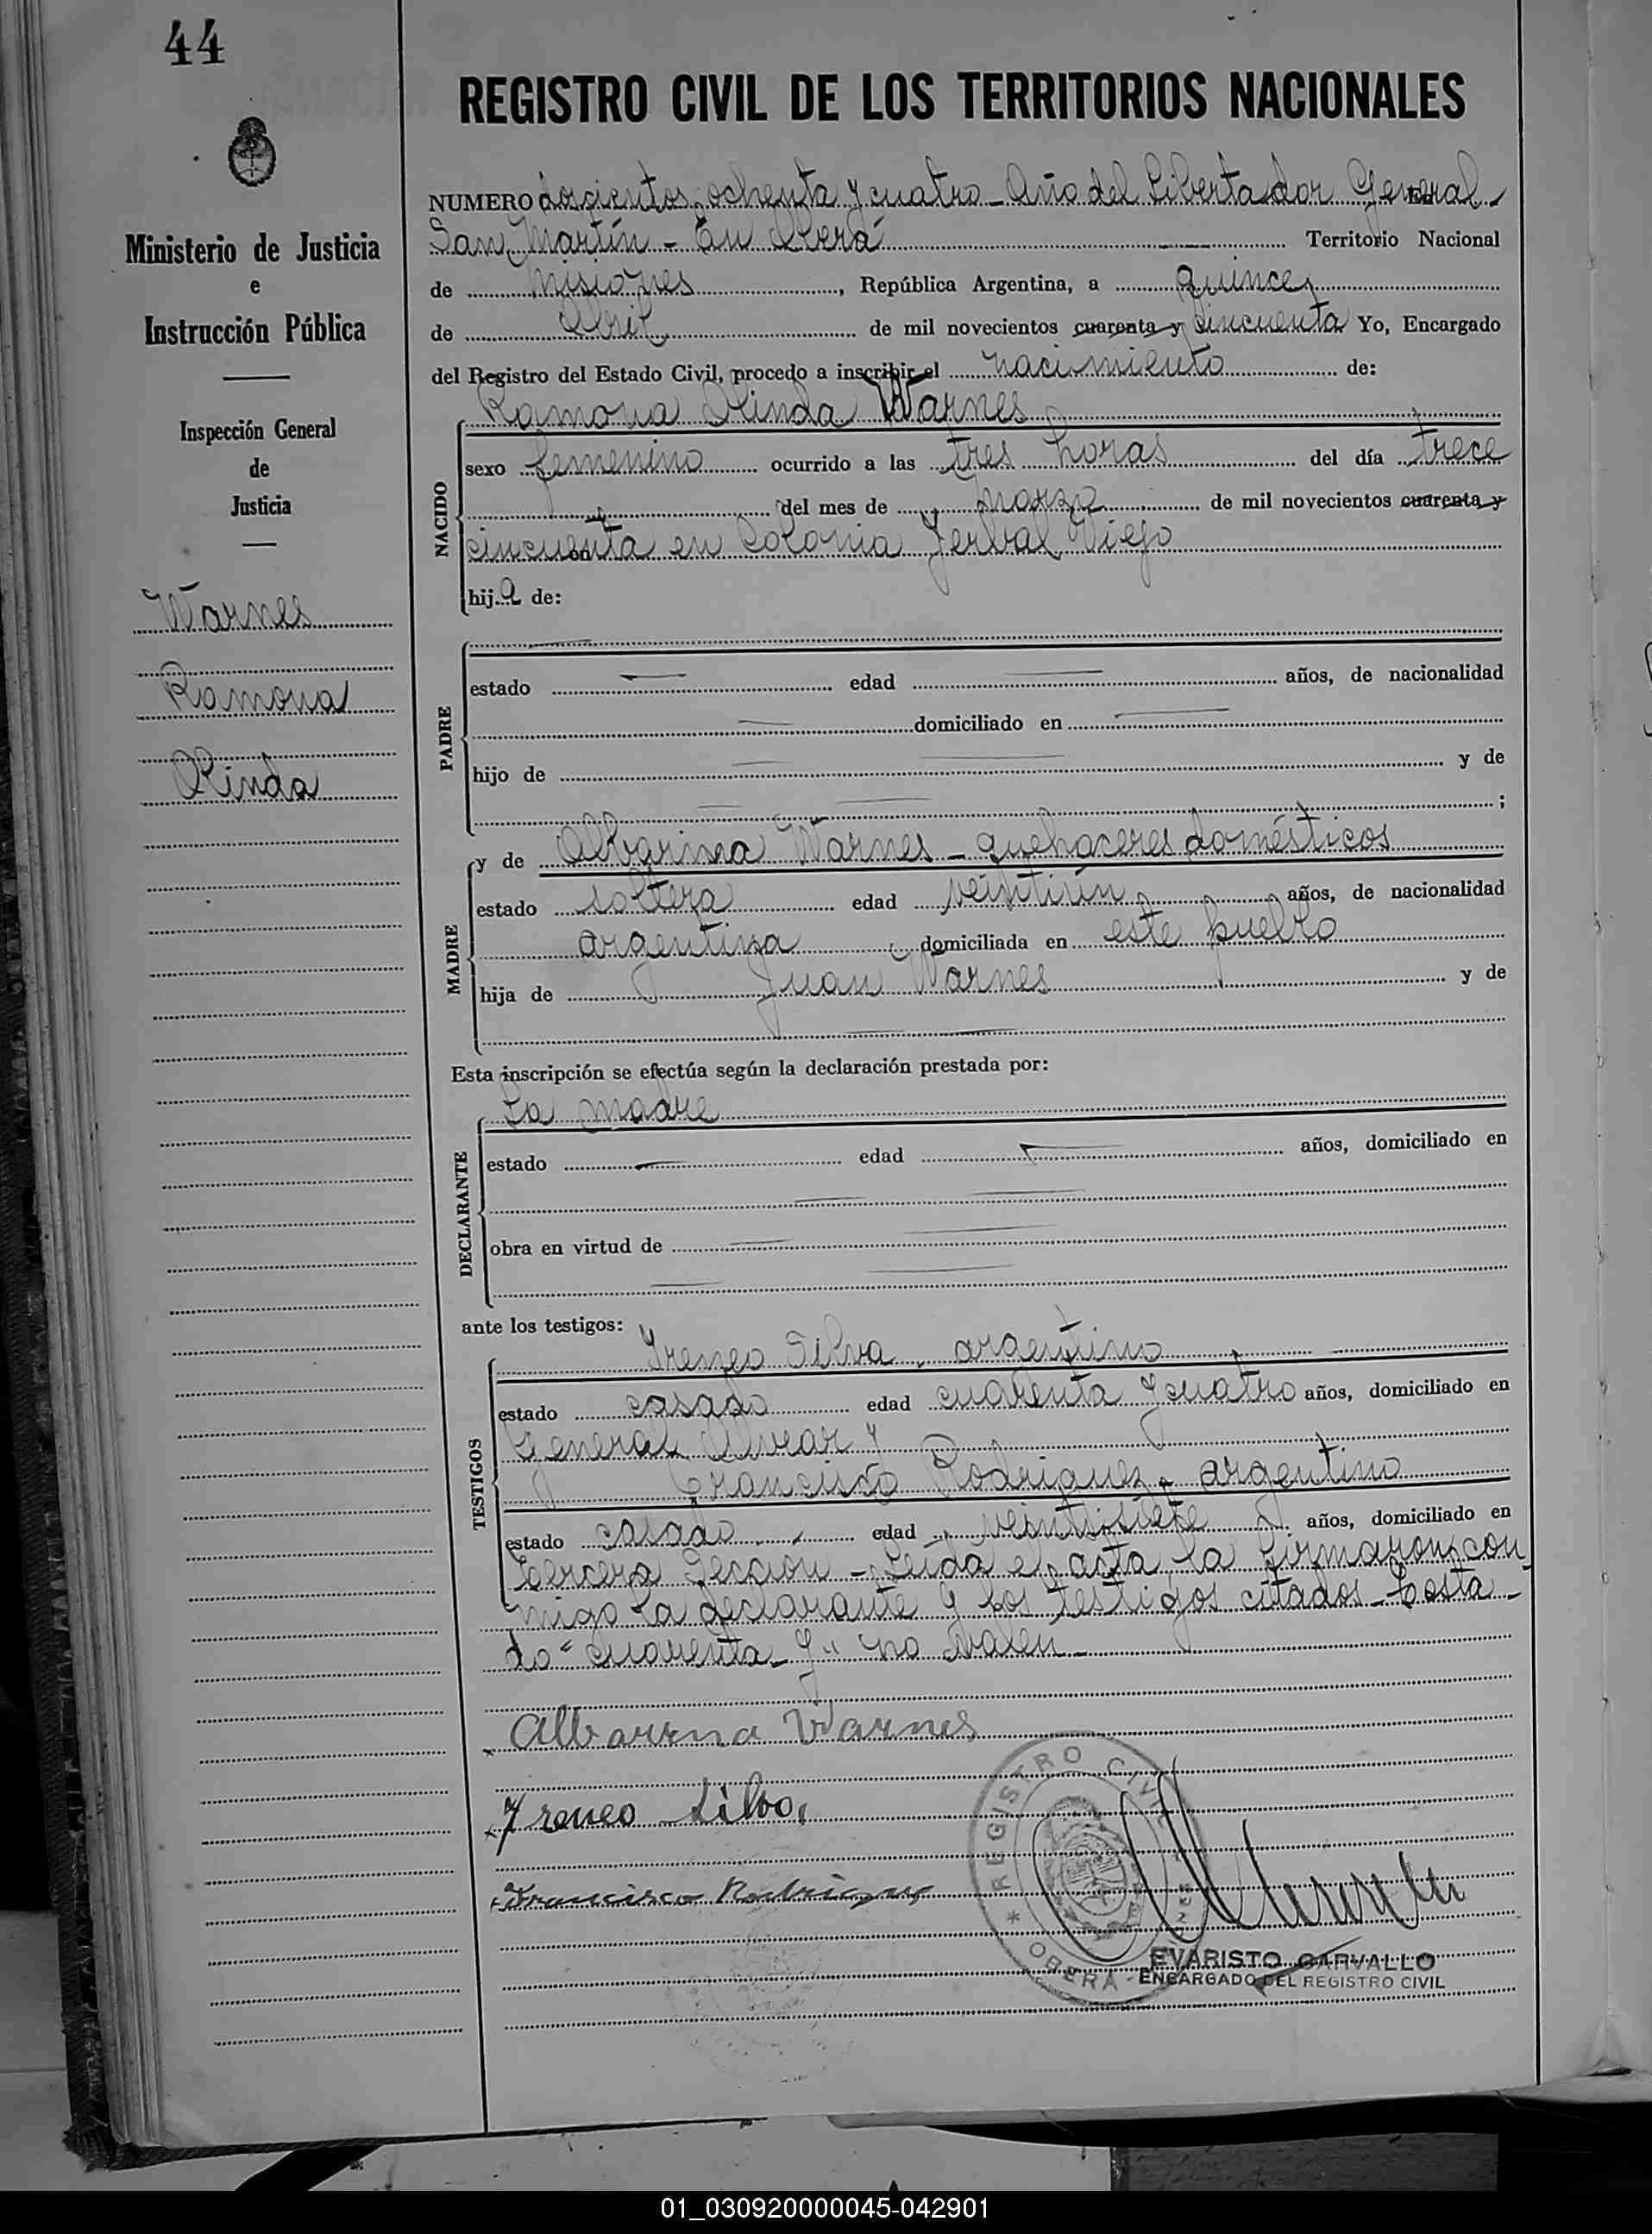 44
REGISTRO CIVIL DE LOS TERRITORIOS NACIONALES
Ministerio de Justicia
e
Instrucción Pública
Inspección General
de
Justicia
Warnes
Ramona
Olinda
NUMERO doscientos ochenta y cuatro - Año del Libertador General
San Martín - En Oberá Territorio Nacional
de Misiones, República Argentina, a quince
de Abril de mil novecientos cuarenta y cincuenta Yo, Encargado
del Registro del Estado Civil, procedo a inscribir el nacimiento de:
Ramona Olinda Warnes
NACIDO
sexo femenino ocurrido a las tres horas del día trece
del mes de marzo de mil novecientos cuarenta y
cincuenta en Colonia Yerbal Viejo
hija de:
PADRE
estado edad años, de nacionalidad
domiciliado en
hijo de y de
;
MADRE
y de Albarina Warnes - quehaceres domésticos
estado soltera edad veintiún años, de nacionalidad
argentina, domiciliada en este pueblo
hija de Juan Warnes y de
Esta inscripción se efectúa según la declaración prestada por:
DECLARANTE
La madre
estado edad años, domiciliado en
obra en virtud de
ante los testigos:
TESTIGOS
Ireneo Silva, argentino
estado casado edad cuarenta y cuatro años, domiciliado en
General Alvear y
Francisco Rodriguez - argentino
estado casado edad veintisiete años, domiciliado en
tercera Sección - Leída el acta la firmaron con
migo la declarante y los testigos citados - Testa-
do "cuarenta y" no valen -
Albarina Warnes
Ireneo Silva
Francisco Rodriguez
REGISTRO CIVIL
OBERÁ
EVARISTO CARVALLO
ENCARGADO DEL REGISTRO CIVIL
01_030920000045-042901